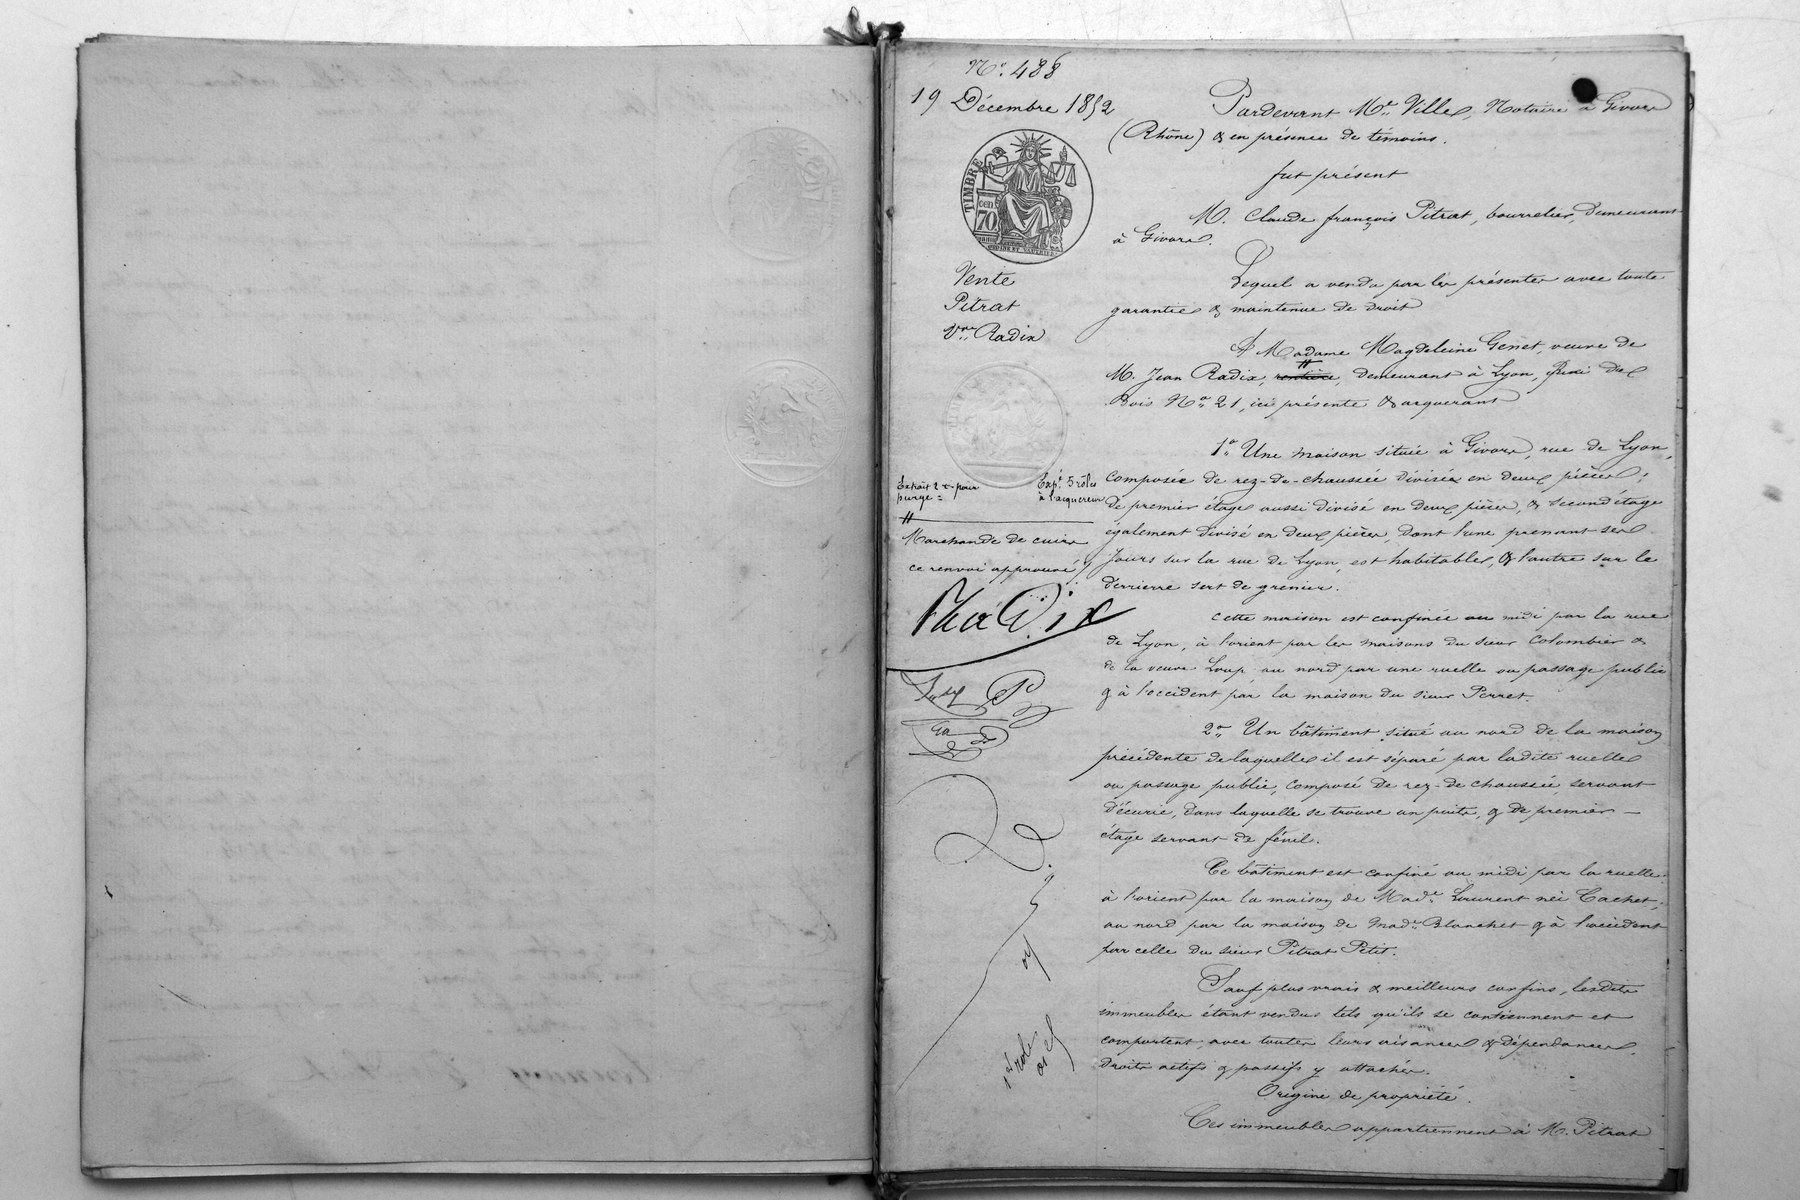 N° 488
19 Décembre 1852
TIMBRE
cen
70
Vente
Pitrat
Vve Radix
Extrait 2 r. pour
purge =
Exp.n 5 rôles
à l'acquereur
#
Marchande de cuirs
ce renvoi approuvé
Vve Radix
1er role
Pardevant Me Ville, Notaire à Givors
(Rhône) & en présence de témoins.
fut présent
M. Claude françois Pitrat, bourrelier, demeurant
à Givors.
Lequel a vendu par les présentes avec toute
garantie & maintenue de droit
A Madame Magdeleine Genet, veuve de
M. Jean Radix, rentière, # demeurant à Lyon, Quai du
Bois N° 21, ici présente & acquerant
1° Une maison située à Givors, rue de Lyon,
composée de rez-de-chaussée divisée en deux pièces;
de premier étage aussi divisé en deux pièces, & second étage
également divisé en deux pièces, dont l'une prenant ses
jours sur la rue de Lyon, est habitable, & l'autre sur le
derrierre sert de grenier.
Cette maison est confinée au midi par la rue
de Lyon, à l'orient par les maisons du sieur Colombier &
de la veuve Loup au nord par une ruelle ou passage public
& à l'occident par la maison du sieur Perret.
2° Un bâtiment situé au nord de la maison
précédente de laquelle il est séparé par ladite ruelle
ou passage public, composé de rez-de chaussée, servant
d'écurie, dans laquelle se trouve un puits, & de premier —
étage servant de fénil.
Ce bâtiment est confiné au midi par la ruelle
à l'orient par la maison de Made Laurent née Cachet,
au nord par la maison de Made Blanchet & à l'occident
par celle du sieur Pitrat Petit.
Sauf plus vrais & meilleurs confins, lesdits
immeubles étant vendus tels qu'ils se contiennent et
comportent, avec toutes leurs aisances & dépendances,
droits actifs & passifs y attachés.
Origine de propriété.
Ces immeubles appartiennent à M. Pitrat